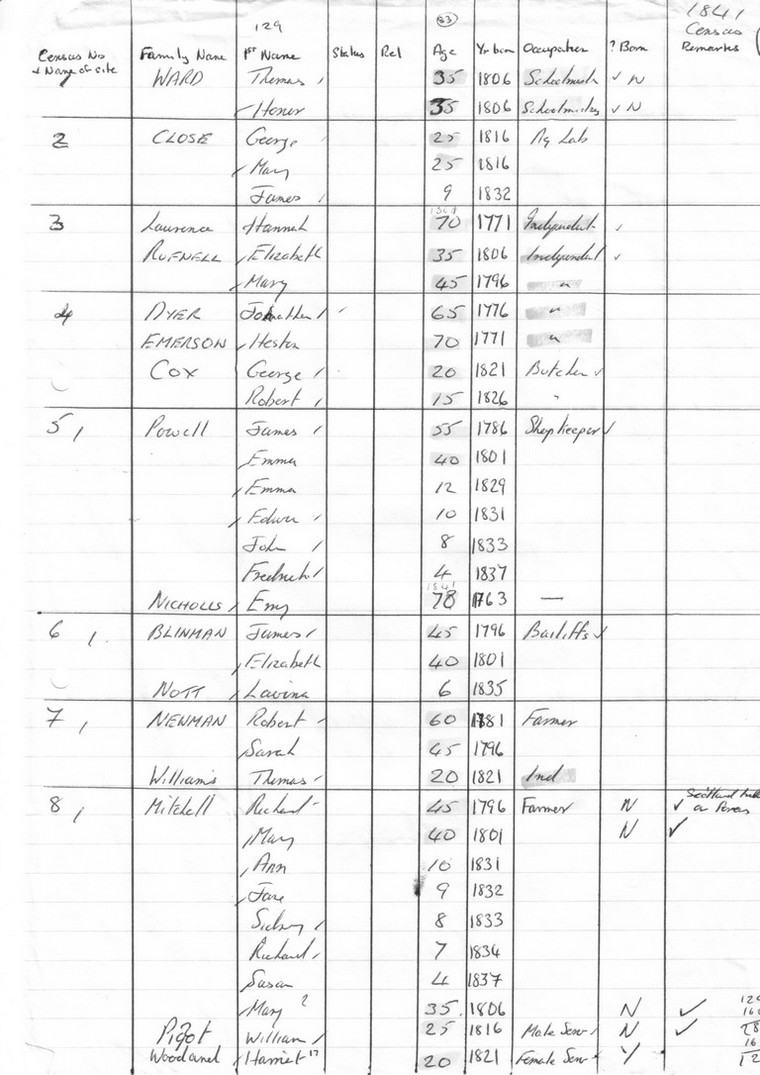 129 (33) 1841
Census
Census No Family Name 1st Name Status Rel Age Yr born Occupation ? Born Remarks
+ Name of site WARD Thomas 35 1806 ✓ N
Honor 35 1806 ✓ N
2 CLOSE George 25 1816 Ag Lab
Mary 25 1816
James 9 1832
3 Laurence Hannah 70 1771 Independent ✓
Elizabeth 35 1806 Independent ✓
Mary 45 1796 "
4 DYER 65 1776 "
EMERSON Hester 70 1771 "
COX George 20 1821 Butcher ✓
Robert 15 1826 "
5 Powell James 55 1786 Shopkeeper ✓
Emma 40 1801
Emma 12 1829
Edwin 10 1831
John 8 1833
Fredrick 4 1837
NICHOLLS 78 1763 —
6 BLINMAN James 45 1796 Bailiffs ✓
Elizabeth 40 1801
NOTT Lavina 6 1835
7 NEWMAN Robert 60 1781 Farmer
Sarah 45 1796
Williams Thomas 20 1821 Ind
8 Mitchell Richard 45 1796 Farmer N ✓
Mary 40 1801 N ✓
Ann 10 1831
Jane 9 1832
Sidney 8 1833
Richard 7 1834
Susan 4 1837
Mary ? 35 1806 N ✓
Pigot William 25 1816 Male Serv N ✓
Harriet 20 1821 Female Serv Y